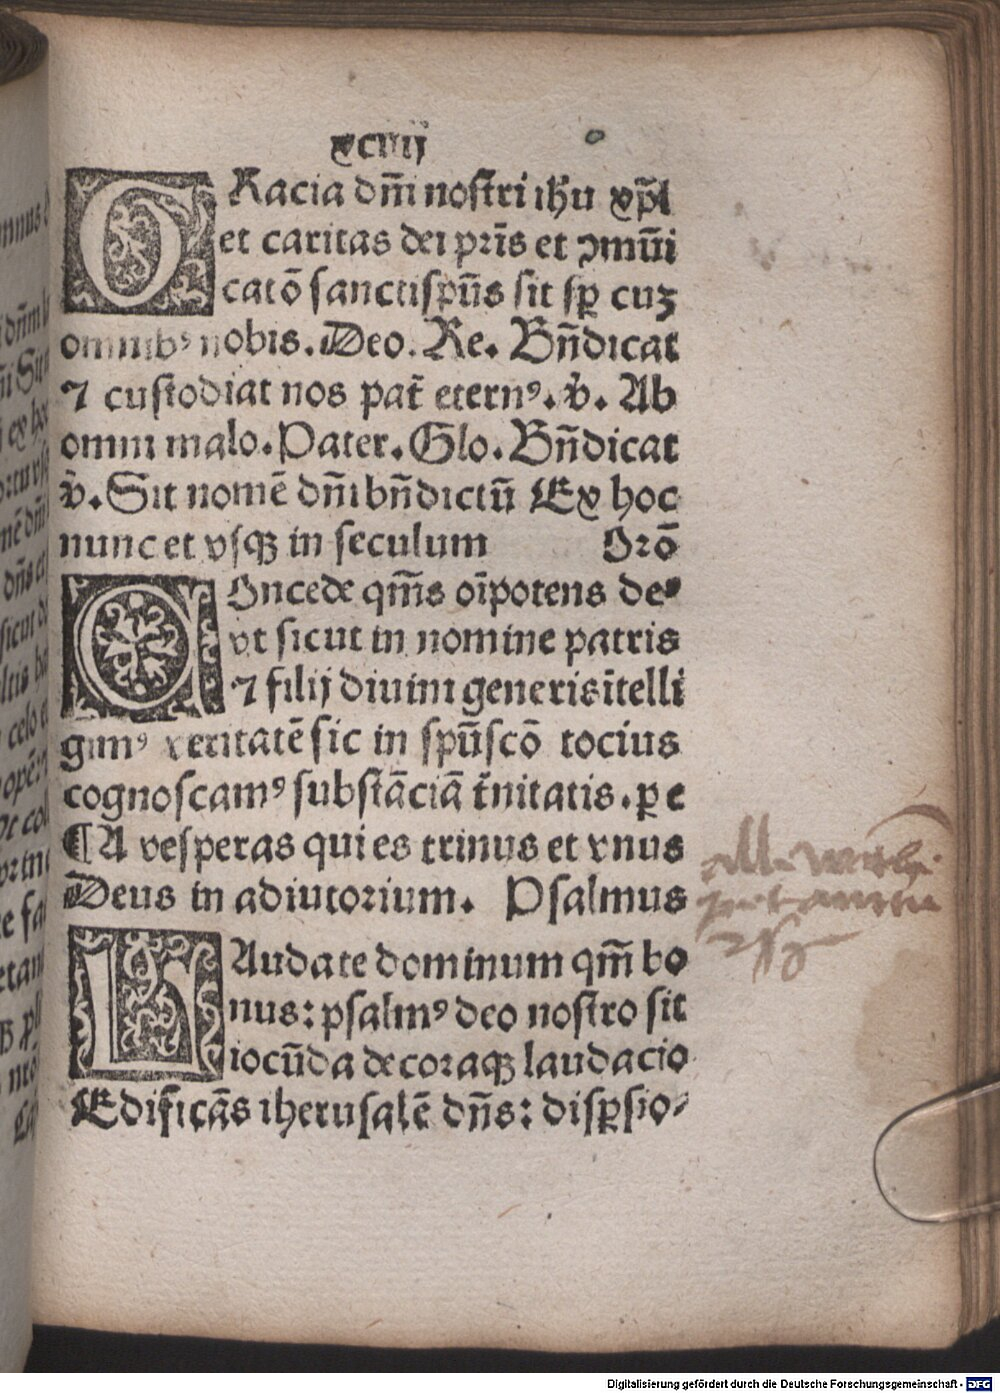 xciiij
GRacia dm̄ nostri ihu xp̄i
et caritas dei pr̄is et ꝯmūi
catō sanctispūs sit sꝑ cuꝫ
omnibꝰ nobis. Deo. Re. Bn̄dicat
⁊ custodiat nos pat̄ eternꝰ. v̄. Ab
omni malo. Pater. Glo. Bn̄dicat
v̄. Sit nomē dn̄i bn̄dictū Ex hoc
nunc et vsqꝫ in seculum Orō
COncede qm̄s oīpotens de⸗
vt sicut in nomine patris
⁊ filij diuini generis ītelli
gimꝰ veritatē sic in spūscō tocius
cognoscamꝰ substāciā t̄nitatis. ꝑ e
¶ A vesperas qui es trinus et vnus
Deus in adiutorium. Psalmus
LAudate dominum qm̄ bo
nus: psalmꝰ deo nostro sit
iocūda decoraqꝫ laudacio
Edificās iherusalē dn̄s: disꝑsio⸗
Digitalisierung gefördert durch die Deutsche Forschungsgemeinschaft - DFG